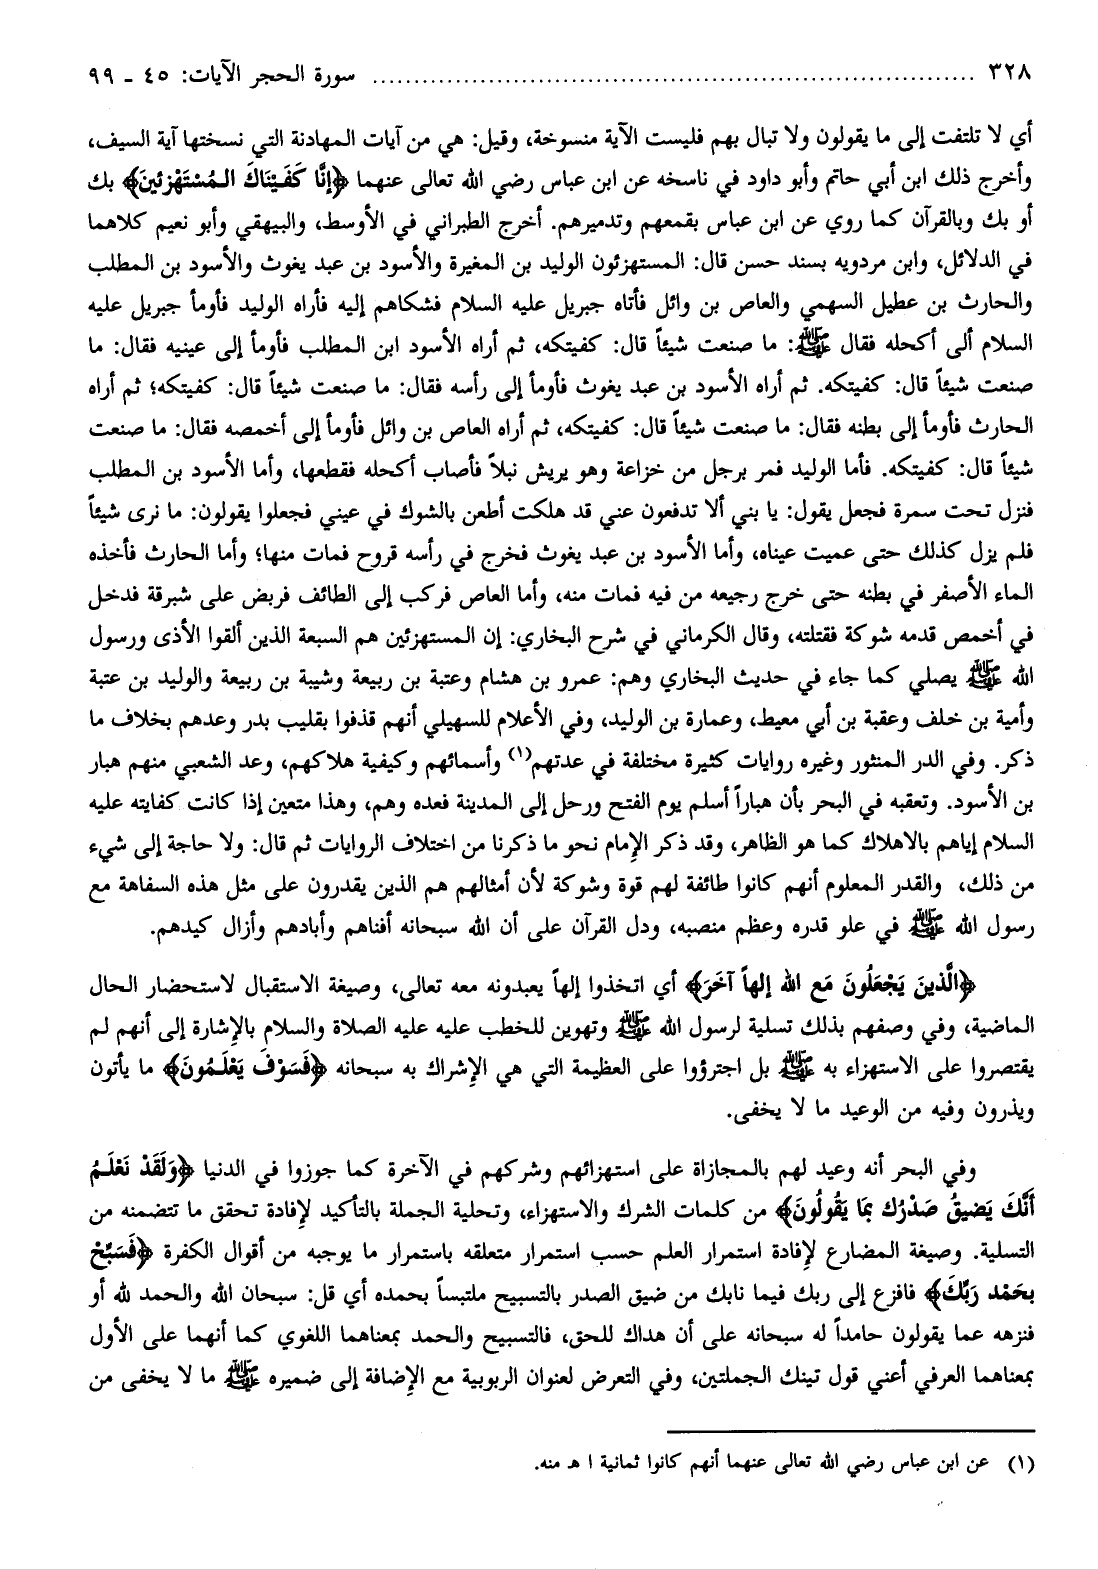 ٣٢٨ ........................................................................ سورة الحجر الآيات: ٤٥ ـ ٩٩
أي لا تلتفت إلى ما يقولون ولا تبال بهم فليست الآية منسوخة، وقيل: هي من آيات المهادنة التي نسختها آية السيف،
وأخرج ذلك ابن أبي حاتم وأبو داود في ناسخه عن ابن عباس رضي الله تعالى عنهما ﴿إِنَّا كَفَيْنَاكَ المُسْتَهْزِئينَ﴾ بك
أو بك وبالقرآن كما روي عن ابن عباس بقمعهم وتدميرهم. أخرج الطبراني في الأوسط، والبيهقي وأبو نعيم كلاهما
في الدلائل، وابن مردويه بسند حسن قال: المستهزئون الوليد بن المغيرة والأسود بن عبد يغوث والأسود بن المطلب
والحارث بن عطيل السهمي والعاص بن وائل فأتاه جبريل عليه السلام فشكاهم إليه فأراه الوليد فأومأ جبريل عليه
السلام ألى أكحله فقال ﷺ: ما صنعت شيئاً قال: كفيتكه، ثم أراه الأسود ابن المطلب فأومأ إلى عينيه فقال: ما
صنعت شيئاً قال: كفيتكه. ثم أراه الأسود بن عبد يغوث فأومأ إلى رأسه فقال: ما صنعت شيئاً قال: كفيتكه؛ ثم أراه
الحارث فأومأ إلى بطنه فقال: ما صنعت شيئاً قال: كفيتكه، ثم أراه العاص بن وائل فأومأ إلى أخمصه فقال: ما صنعت
شيئاً قال: كفيتكه. فأما الوليد فمر برجل من خزاعة وهو يريش نبلاً فأصاب أكحله فقطعها، وأما الأسود بن المطلب
فنزل تحت سمرة فجعل يقول: يا بني ألا تدفعون عني قد هلكت أطعن بالشوك في عيني فجعلوا يقولون: ما نرى شيئاً
فلم يزل كذلك حتى عميت عيناه، وأما الأسود بن عبد يغوث فخرج في رأسه قروح فمات منها؛ وأما الحارث فأخذه
الماء الأصفر في بطنه حتى خرج رجيعه من فيه فمات منه، وأما العاص فركب إلى الطائف فربض على شبرقة فدخل
في أخمص قدمه شوكة فقتلته، وقال الكرماني في شرح البخاري: إن المستهزئين هم السبعة الذين ألقوا الأذى ورسول
الله ﷺ يصلي كما جاء في حديث البخاري وهم: عمرو بن هشام وعتبة بن ربيعة وشيبة بن ربيعة والوليد بن عتبة
وأمية بن خلف وعقبة بن أبي معيط، وعمارة بن الوليد، وفي الأعلام للسهيلي أنهم قذفوا بقليب بدر وعدهم بخلاف ما
ذكر. وفي الدر المنثور وغيره روايات كثيرة مختلفة في عدتهم(١) وأسمائهم وكيفية هلاكهم، وعد الشعبي منهم هبار
بن الأسود. وتعقبه في البحر بأن هباراً أسلم يوم الفتح ورحل إلى المدينة فعده وهم، وهذا متعين إذا كانت كفايته عليه
السلام إياهم بالاهلاك كما هو الظاهر، وقد ذكر الإمام نحو ما ذكرنا من اختلاف الروايات ثم قال: ولا حاجة إلى شيء
من ذلك، والقدر المعلوم أنهم كانوا طائفة لهم قوة وشوكة لأن أمثالهم هم الذين يقدرون على مثل هذه السفاهة مع
رسول الله ﷺ في علو قدره وعظم منصبه، ودل القرآن على أن الله سبحانه أفناهم وأبادهم وأزال كيدهم.
﴿الَّذينَ يَجْعَلُونَ مَع الله إلهاً آخَرَ﴾ أي اتخذوا إلهاً يعبدونه معه تعالى، وصيغة الاستقبال لاستحضار الحال
الماضية، وفي وصفهم بذلك تسلية لرسول الله ﷺ وتهوين للخطب عليه عليه الصلاة والسلام بالإشارة إلى أنهم لم
يقتصروا على الاستهزاء به ﷺ بل اجترؤوا على العظيمة التي هي الإشراك به سبحانه ﴿فَسَوْفَ يَعْلَمُونَ﴾ ما يأتون
ويذرون وفيه من الوعيد ما لا يخفى.
وفي البحر أنه وعيد لهم بالمجازاة على استهزائهم وشركهم في الآخرة كما جوزوا في الدنيا ﴿وَلَقَدْ نَعْلَمُ
أَنَّكَ يَضيقُ صَدْرُكَ بمَا يَقُولُونَ﴾ من كلمات الشرك والاستهزاء، وتحلية الجملة بالتأكيد لإفادة تحقق ما تتضمنه من
التسلية. وصيغة المضارع لإفادة استمرار العلم حسب استمرار متعلقه باستمرار ما يوجبه من أقوال الكفرة ﴿فَسَبِّحْ
بحَمْد رَبِّكَ﴾ فافزع إلى ربك فيما نابك من ضيق الصدر بالتسبيح ملتبساً بحمده أي قل: سبحان الله والحمد لله أو
فنزهه عما يقولون حامداً له سبحانه على أن هداك للحق، فالتسبيح والحمد بمعناهما اللغوي كما أنهما على الأول
بمعناهما العرفي أعني قول تينك الجملتين، وفي التعرض لعنوان الربوبية مع الإضافة إلى ضميره ﷺ ما لا يخفى من
(١) عن ابن عباس رضي الله تعالى عنهما أنهم كانوا ثمانية ا هـ منه.